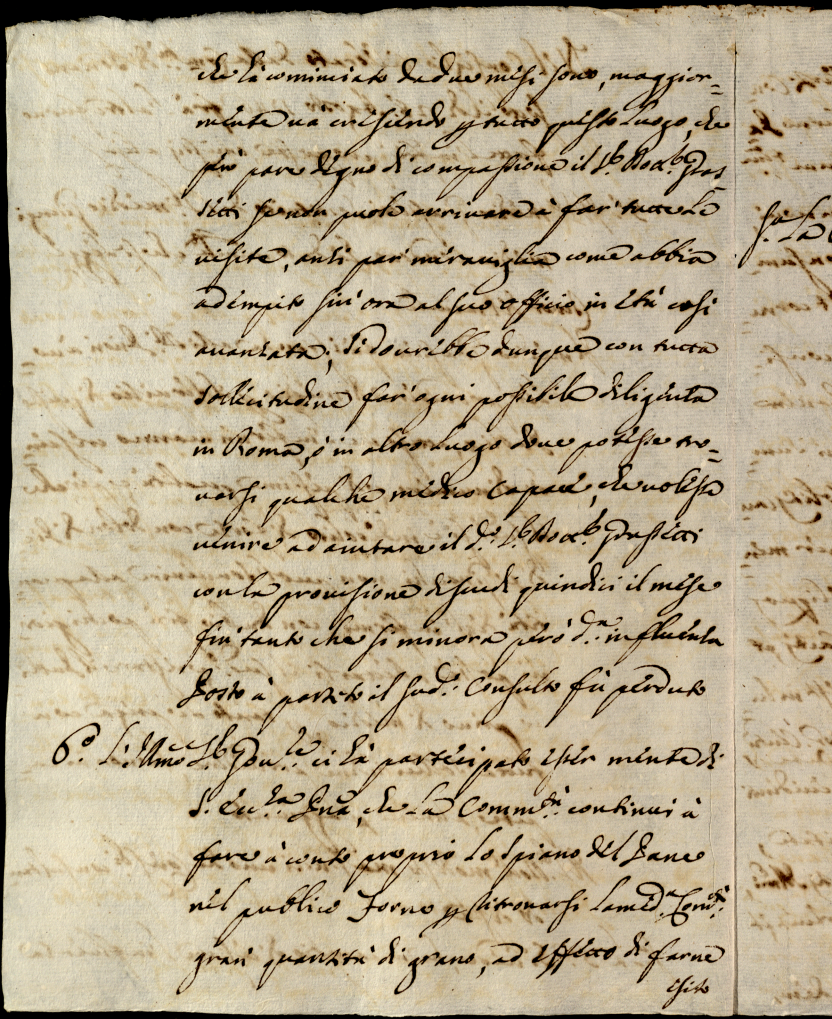 che hà cominciato da due mesi sono, maggior=
mente và crescendo p tutto questo Luogo, che
però pare degno di compassione il S.r Dott.r Gras
setti se non puole arrivare à far tutte Le
visite, anzi par meraviglia come abbia
adempito sin' ora al suo officio in età così
avanzata; Si dovrebbe dunque con tutta
sollecitudine far' ogni possibile diligenza
in Roma, ò in altro Luogo dove potesse tro=
varsi qualche medico capace, che volesse
venire ad aiutare il d.o S.r Dott.r Grassetti
con la provisione di scudi quindici il mese
fin tanto che si minora però d.a influenza
Posto à partito il sud.o Consulto fù perduto
6.o L'Illmo S.r Gov.re ci hà partecipato esser mente di
S. Ecc.za Prōne, che La Comm.tà continui à
fare à conto proprio Lo spiano del Pane
nel publico Forno p ritrovarsi la med.a Com.tà
gran quantità di grano, ad effetto di farne
esito